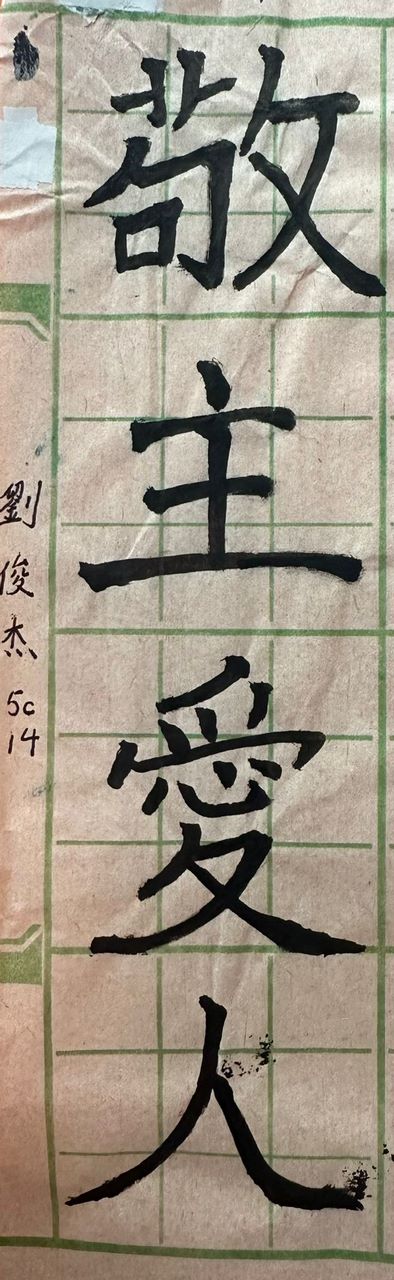 敬主愛人
劉俊杰 5c 14